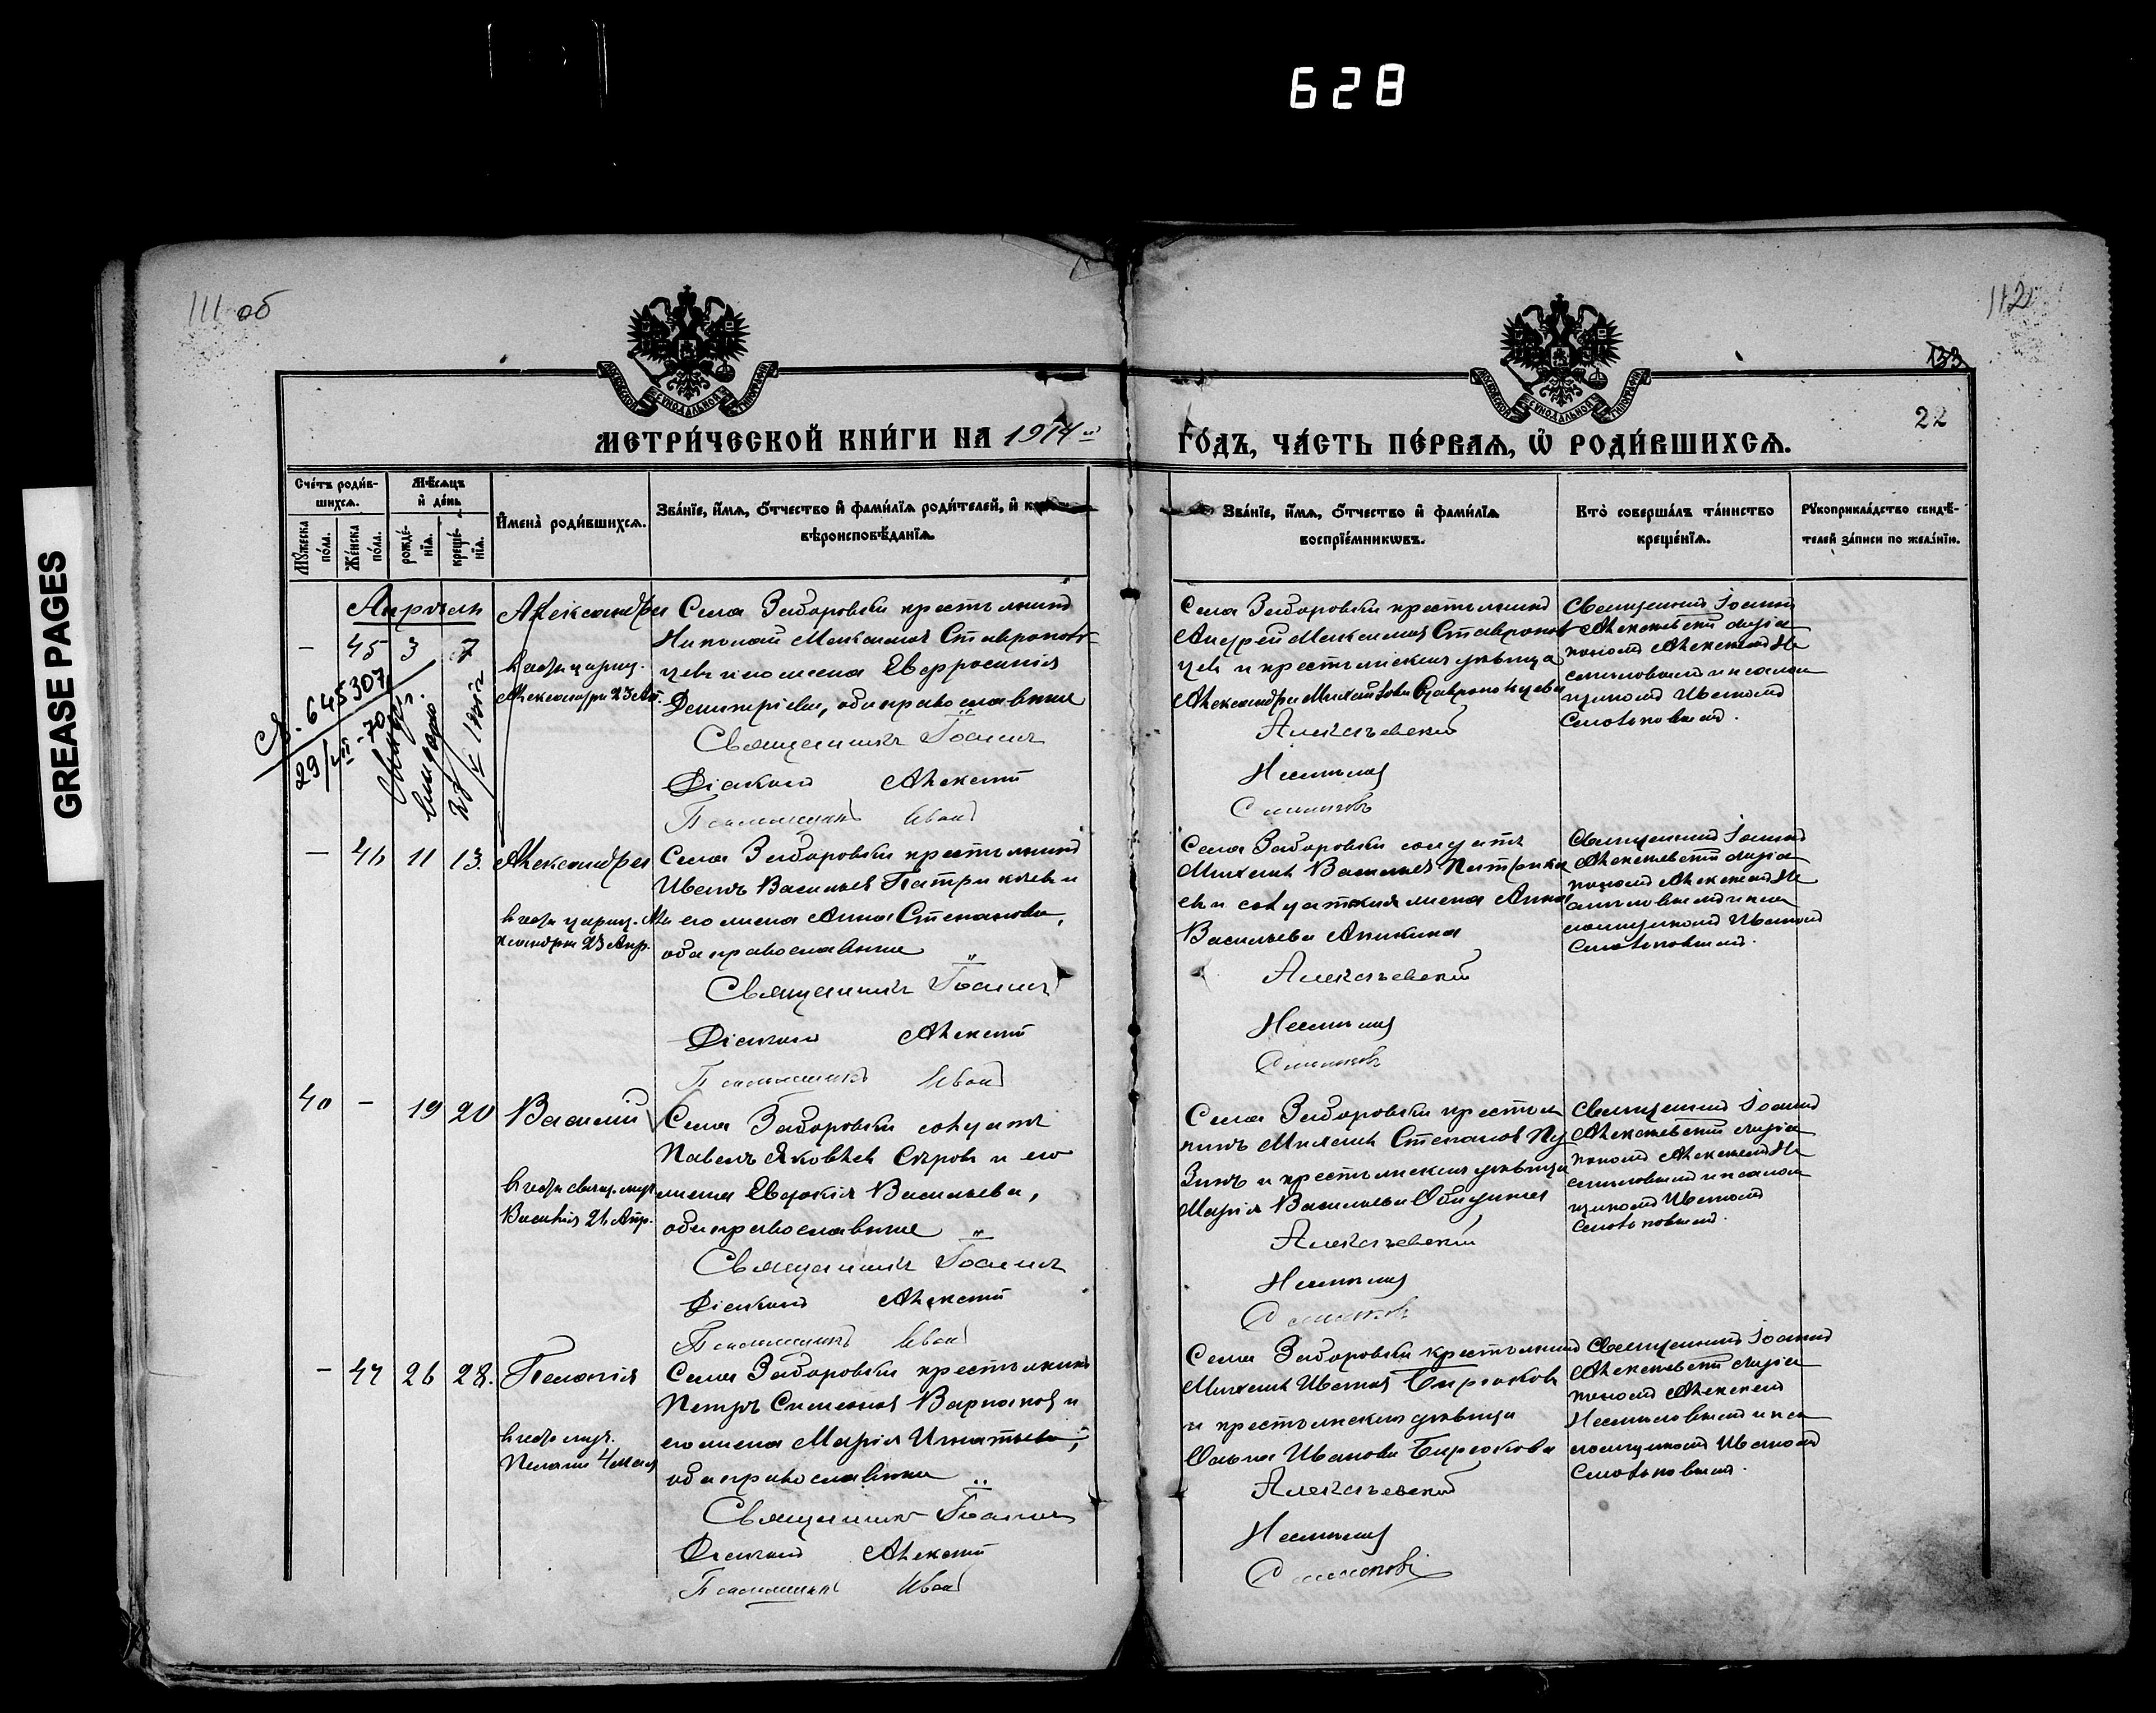 628
GREASE PAGES
111 об
112
133
22
МЕТРИ́ЧЕСКОЙ КНИ́ГИ НА 1914й
ГО́ДЪ, ЧА́СТЬ ПЕ́РВАѦ, Ѡ҆ РОДИ́ВШИХСѦ.
Сче́тъ роди́в-
шихсѧ.
Мꙋ́жеска
по́ла.
Же́нска
по́ла.
Мѣ́сѧцъ
и҆ де́нь
рожде́-
нїѧ.
креще́-
нїѧ.
И҆мена̀ роди́вшихсѧ.
Зва́нїе, и҆́мѧ, ѻ҆́тчество и҆ фами́лїѧ роди́телей, и҆
вѣроисповѣ́данїѧ.
Зва́нїе, и҆́мѧ, ѻ҆́тчество и҆ фами́лїѧ
воспрїе́мникѡвъ.
Кто̀ соверша́лъ та́инство
креще́нїѧ.
Рꙋкоприкла́дство свидѣ́-
телей за́писи по жела́нїю.
Апрѣль
— 45 3 7
Александра
въ честь цариц.
Александры 23 Ап.
Села Заборовки крестьянинъ
Николай Максимов Ставрополь-
цев и его жена Евфросинія
Димитріева, оба православные
Священникъ Іоаннъ
Діаконъ Алексій
Псаломщикъ Иванъ
Села Заборовки крестьянинъ
Андрей Максимов Ставрополь-
цев и крестьянская дѣвица
Александра Михайлова Ставропольцева
Алексѣевскій
Несмѣлов
Смольков
Священникъ Іоаннъ
Алексѣевскій съ діа
кономъ Алексѣемъ Не
смѣловымъ и псалом
щикомъ Иваномъ
Смольковымъ.
С. 645307
29/VII-70
— 46 11 13.
Александра
въ честь цариц. Але
ксандры 23 Апр.
Села Заборовки крестьянинъ
Иванъ Васильев Патрикѣев и
его жена Анна Степанова,
оба православные
Священникъ Іоаннъ
Діаконъ Алексій
Псаломщикъ Иванъ
Села Заборовки солдатъ
Михаил Васильев Патрикѣ
ев и солдатская жена Анна
Васильева Аникина
Алексѣевскій
Несмѣлов
Смольков
Священникъ Іоаннъ
Алексѣевскій съ діа
кономъ Алексѣемъ Не
смѣловымъ и пса
ломщикомъ Иваномъ
Смольковымъ.
40 — 19 20
Василій
въ честь свящ. муч.
Василія 26 Апр.
Села Заборовки солдатъ
Павелъ Яковлев Сѣров и его
жена Евдокія Васильева,
оба православные
Священникъ Іоаннъ
Діаконъ Алексій
Псаломщикъ Иванъ
Села Заборовки крестья
нинъ Михаил Степанов Пу
зинъ и крестьянская дѣвица
Марія Васильева
Алексѣевскій
Несмѣлов
Смольков
Священникъ Іоаннъ
Алексѣевскій съ діа
кономъ Алексѣемъ Не
смѣловымъ и псалом
щикомъ Иваномъ
Смольковымъ.
— 47 26 28.
Пелагія
въ честь муч.
Пелагіи 4 мая
Села Заборовки крестьянинъ
Петръ Симеонов и
его жена Марія Игнатьева,
оба православные
Священникъ Іоаннъ
Діаконъ Алексій
Псаломщикъ Иванъ
Села Заборовки крестьянинъ
Михаил Иванов Бирюков
и крестьянская дѣвица
Ольга Иванова Бирюкова
Алексѣевскій
Несмѣлов
Смольков
Священникъ Іоаннъ
Алексѣевскій съ діа
кономъ Алексѣемъ
Несмѣловымъ и пса
ломщикомъ Иваномъ
Смольковымъ.